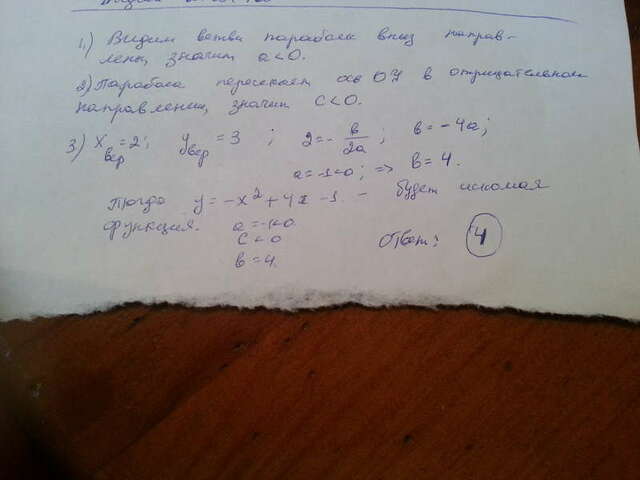 1) Видим ветви параболы вниз направ-
лены, значит a<0.
2) Парабола пересекает ось OY в отрицательном
направлении, значит C<0.
3) x вер = 2; y вер = 3; 2 = - в/2a; в = -4a;
a = -1<0; => в = 4.
Тогда y = -x² + 4x - 1. - будет искомая
функция. a = -1<0.
C<0
в = 4.
Ответ: 4